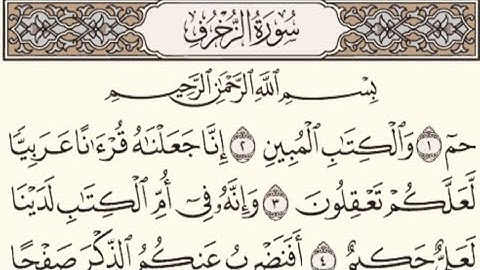 سُورَةُ الزُّخْرُفِ
بِسْمِ اللَّهِ الرَّحْمَٰنِ الرَّحِيمِ
حمٓ ١ وَالْكِتَابِ الْمُبِينِ ٢ إِنَّا جَعَلْنَاهُ قُرْءَانًا عَرَبِيًّا
لَّعَلَّكُمْ تَعْقِلُونَ ٣ وَإِنَّهُۥ فِىٓ أُمِّ الْكِتَابِ لَدَيْنَا
لَعَلِىٌّ حَكِيمٌ ٤ أَفَنَضْرِبُ عَنكُمُ الذِّكْرَ صَفْحًا